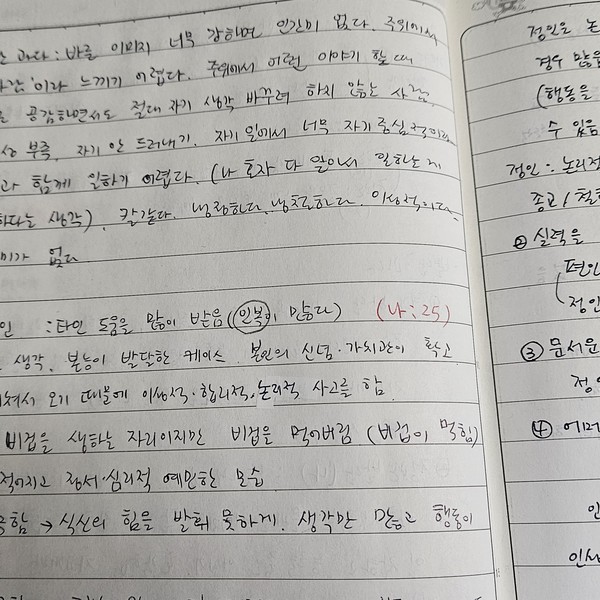 과다 : 바른 이미지 너무 강하면 인간미 없다. 주위에서
이라 느끼기 어렵다. 주위에서 어떤 이야기 할 때
공감하면서도 절대 자기 생각 바꾸려 하지 않는 사람.
부족, 자기 안 드러내기. 자기 일에서 너무 자기중심적이라
과 함께 일하기 어렵다. (나 혼자 다 알아서 일하는 게
하다는 생각). 칼같다. 냉정하다. 냉철하다. 이성적이다.
미가 없다
인 : 타인 도움을 많이 받음 (인복이 많다) (나:25)
생각, 본능이 발달한 케이스. 본인의 신념·가치관이 확고
오기 때문에 이상적·합리적·논리적 사고를 함
비겁을 생하는 자리이지만 비겁을 먹어버림 (비겁이 먹힘)
적어지고 정서·심리적 예민한 모습
→ 식신의 힘을 발휘 못하게. 생각만 많고 행동이
정인은 논
경우 많음
(행동을
수 있음
정인 : 논리적
종교/철학
② 실력을
편인
정인
③ 문서운
정
④
인
인성